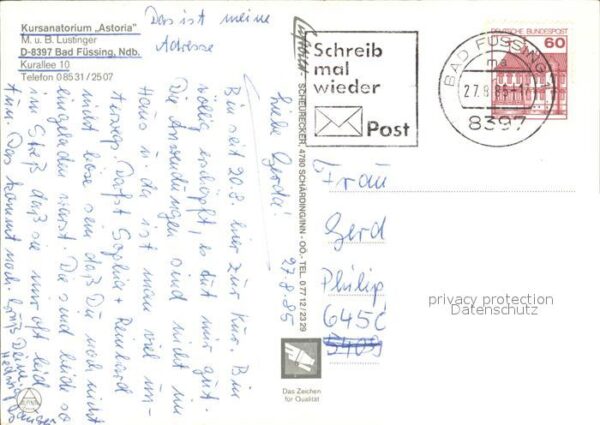 Kursanatorium „Astoria"
M. u. B. Lustinger
D-8397 Bad Füssing, Ndb.
Kurallee 10
Telefon 08531/2507
Das ist meine
Adresse
27.8.85
Liebe Gerda!
Bin seit 20.8. hier zur Kur. Bin
völlig erschöpft, es tut mir gut.
Die Anwendungen sind nicht im
Haus u. da ist man viel un-
terwegs. Darfst Sophie + Reinhard
nicht böse sein daß Du noch nicht
eingeladen warst. Die sind beide so
im Streß daß sie mir oft leid
tun. Das kommt noch. Gruß Deine
Hedwig
SCHEURECKER, 4780 SCHÄRDING/INN - OÖ. - TEL. 07712/2329
Das Zeichen
für Qualität
Schreib
mal
wieder
Post
BAD FÜSSING 1
ma
27.8.85-17
8397
DEUTSCHE BUNDESPOST
60
Frau
Gerd
Philip
645
5409
privacy protection
Datenschutz